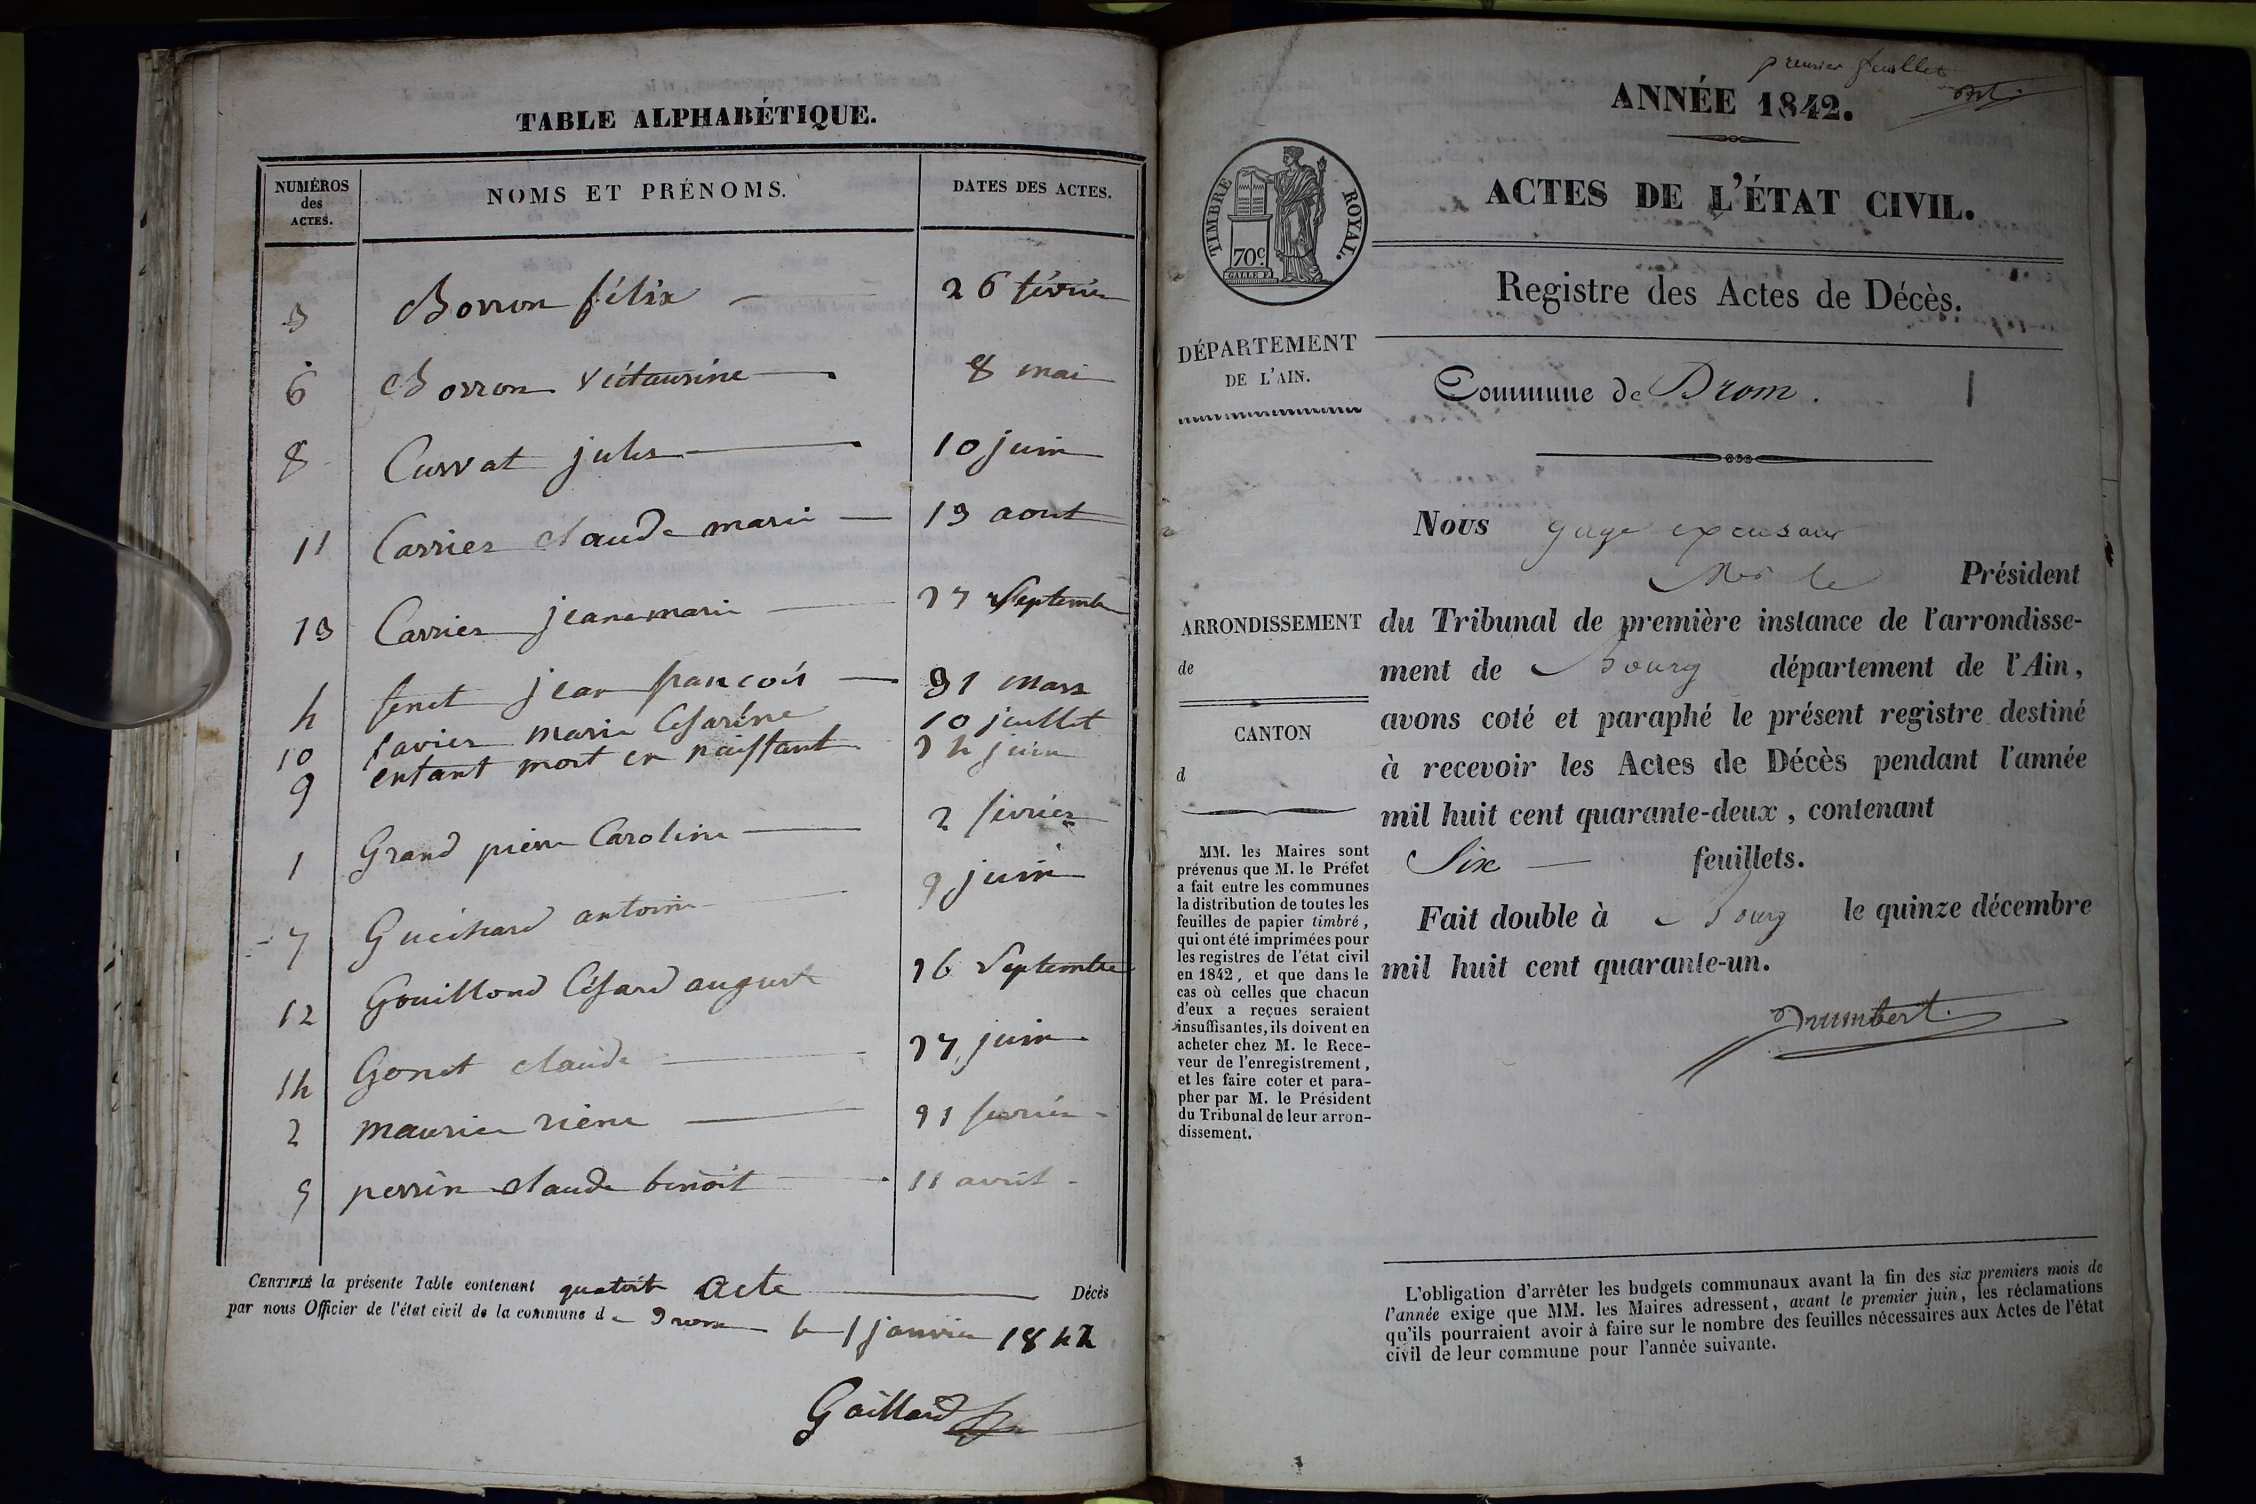 TABLE ALPHABÉTIQUE.
NUMÉROS des ACTES. NOMS ET PRÉNOMS. DATES DES ACTES.
3 Borron félix 26 février
6 Borron Victaurine 8 mai
8 Curvat jules 10 juin
11 Carrier claude marie 13 aout
13 Carrier jeanemarie 27 Septembre
4 fenet jean francois 31 mars
10 favier marie Césarine 10 juillet
9 enfant mort en naissant 24 juin
1 Grand pierre Caroline 2 février
7 Guichard antoine 9 juin
12 Gouillond César auguste 16 Septembre
14 Gonet claude 27 juin
2 maurice 21 fevrier
5 perrin claude benoit 11 avril
CERTIFIÉ la présente Table contenant quatorze acte Décès
par nous Officier de l'état civil de la commune de Drom le 1 janvier 1842
Gaillard
premier feuillet
ANNÉE 1842.
ACTES DE L'ÉTAT CIVIL.
TIMBRE ROYAL.
70c.
GALLE F.
Registre des Actes de Décès.
DÉPARTEMENT
DE L'AIN.
Commune de Drom.
1
Nous
le Président
ARRONDISSEMENT
de
CANTON
d
du Tribunal de première instance de l'arrondisse-
ment de Bourg département de l'Ain,
avons coté et paraphé le présent registre destiné
à recevoir les Actes de Décès pendant l'année
mil huit cent quarante-deux, contenant
Six feuillets.
Fait double à Bourg le quinze décembre
mil huit cent quarante-un.
MM. les Maires sont
prévenus que M. le Préfet
a fait entre les communes
la distribution de toutes les
feuilles de papier timbré,
qui ont été imprimées pour
les registres de l'état civil
en 1842, et que dans le
cas où celles que chacun
d'eux a reçues seraient
insuffisantes, ils doivent en
acheter chez M. le Rece-
veur de l'enregistrement,
et les faire coter et para-
pher par M. le Président
du Tribunal de leur arron-
dissement.
L'obligation d'arrêter les budgets communaux avant la fin des six premiers mois de
l'année exige que MM. les Maires adressent, avant le premier juin, les réclamations
qu'ils pourraient avoir à faire sur le nombre des feuilles nécessaires aux Actes de l'état
civil de leur commune pour l'année suivante.